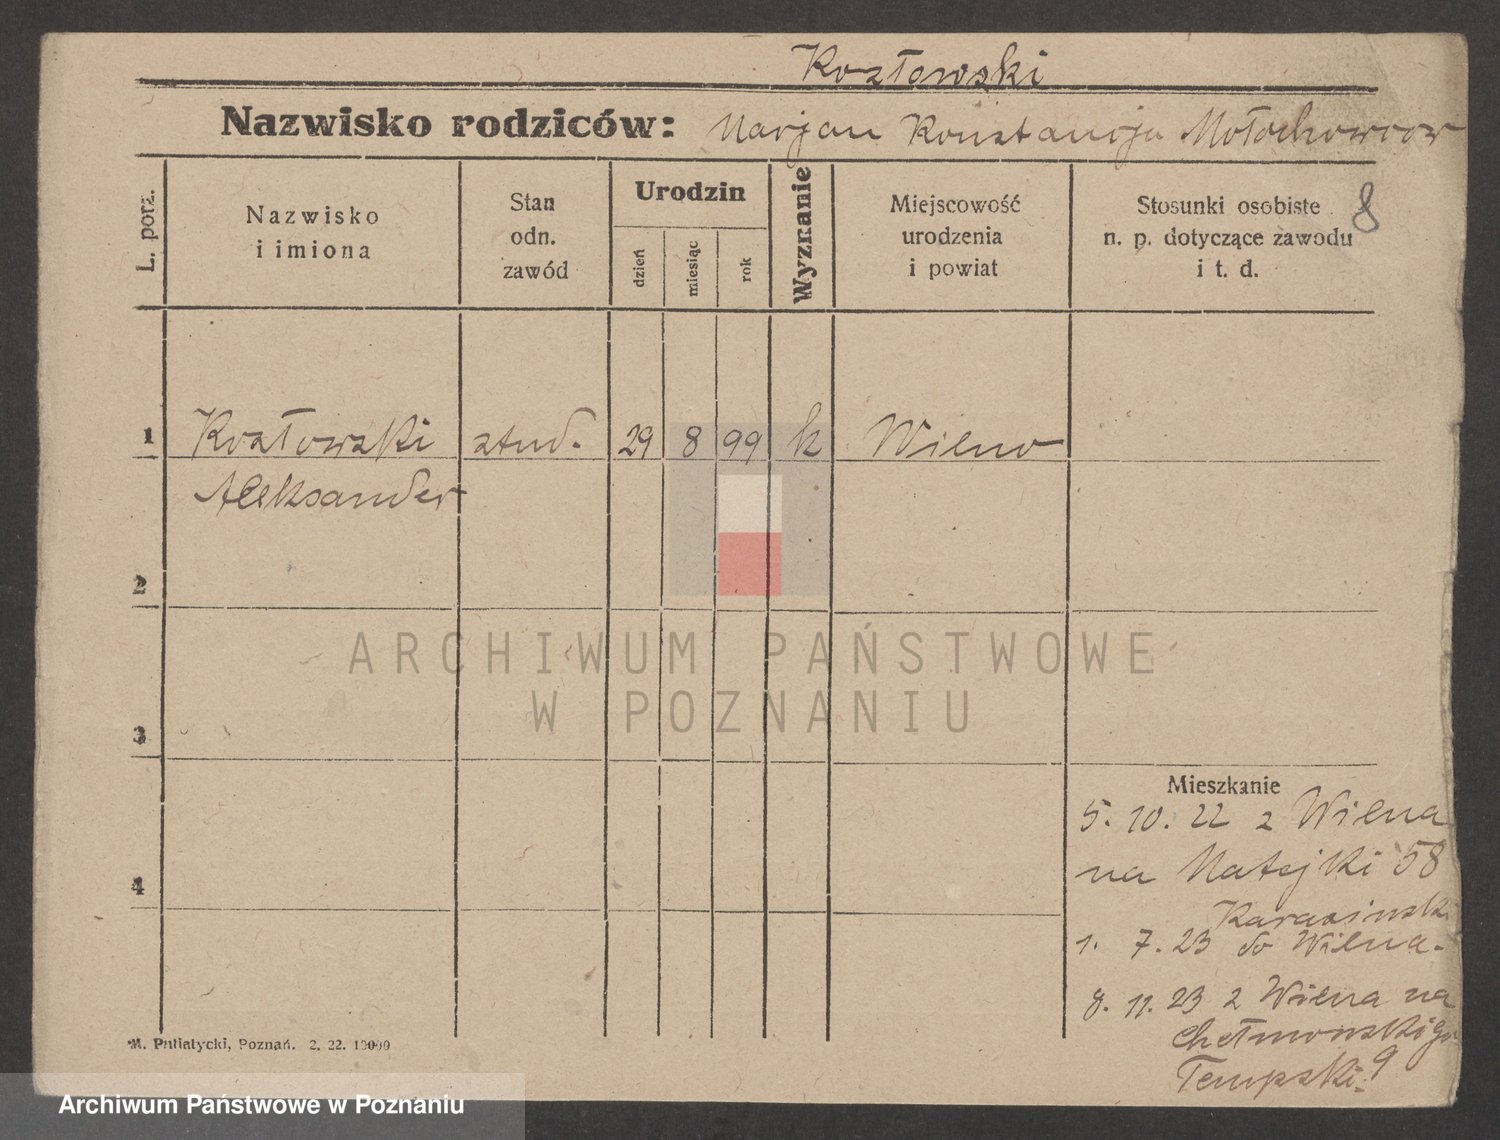 Kozłowski
Nazwisko rodziców: Marjan Konstancja Mołochowców
L. porz.
Nazwisko
i imiona
Stan
odn.
zawód
Urodzin
dzień
miesiąc
rok
Wyznanie
Miejscowość
urodzenia
i powiat
Stosunki osobiste
n. p. dotyczące zawodu
i t. d.
8
1 Kozłowski stud. 29 8 99 k Wilno
Aleksander
2
ARCHIWUM PAŃSTWOWE
W POZNANIU
3
Mieszkanie
5. 10. 22 z Wilna
na Matejki 58
4
Karasinski
1. 7. 23 do Wilna.
8. 11. 23 z Wilna na
Chełmońskiego
Tempski. 9
M. Putiatycki, Poznań. 2. 22. 10000
Archiwum Państwowe w Poznaniu